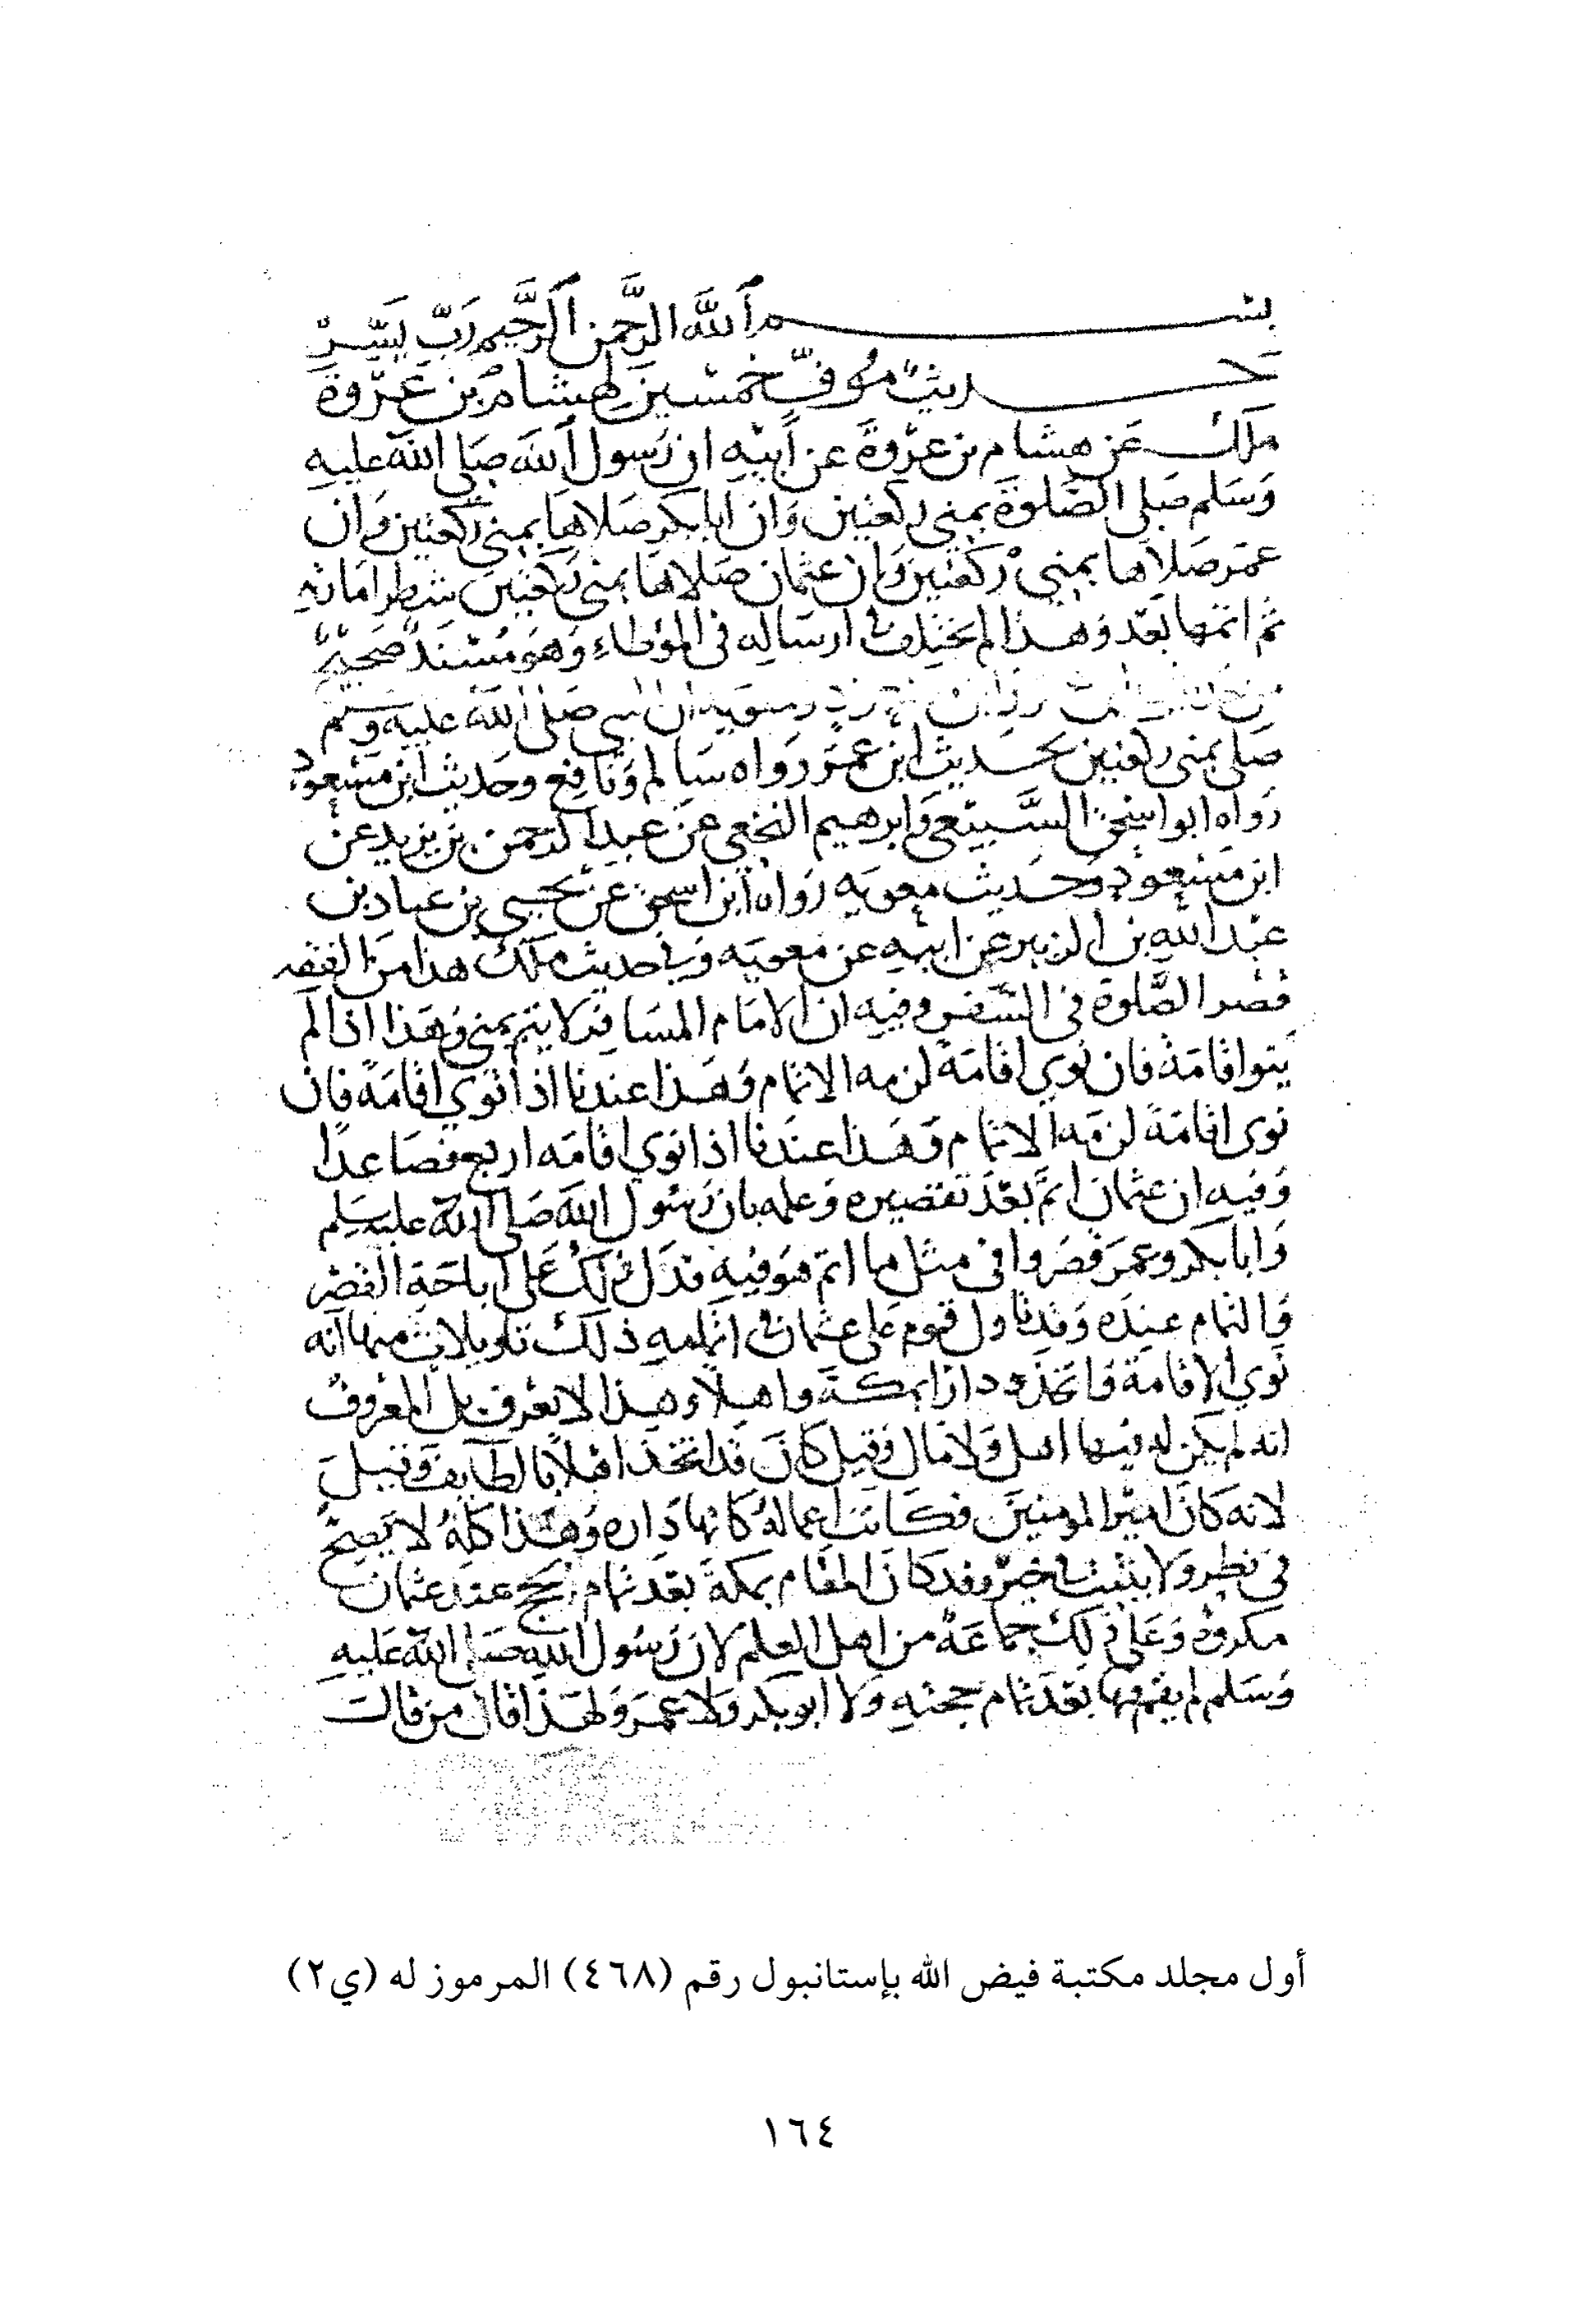 بسم الله الرحمن الرحيم رَبِّ يَسِّرْ
حديث موفّ خمسين لهشام بن عروة
ملك عن هشام بن عروة عن أبيه ان رسول الله صلى الله عليه
وسلم صلى الصلوة بمنى ركعتين وان ابا بكر صلاها بمنى ركعتين وان
عمر صلاها بمنى ركعتين وان عثمان صلاها بمنى ركعتين شطر امارته
ثم اتمها بعد وهذا لم يختلف في ارساله في الموطاء وهو مسند صحيح
ان النبي صلى الله عليه وسلم
صلى بمنى ركعتين حديث ابن عمر رواه سالم ونافع وحديث ابن مسعود
رواه ابو اسحق السبيعي وابرهيم النخعي عن عبد الرحمن بن يزيد عن
ابن مسعود وحديث معويه رواه ابن اسحق عن يحيى بن عباد بن
عبد الله بن الزبير عن ابيه عن معويه وفي حديث ملك هذا من الفقه
قصر الصلوة في السفر وفيه ان الامام المسافر لا يتم بمنى وهذا اذا لم
ينو اقامة فان نوى اقامة لزمه الاتمام وهذا عندنا اذا نوى اقامة فان
نوى اقامة لزمه الاتمام وهذا عندنا اذا نوى اقامه اربع فصاعدا
وفيه ان عثمان اتم بعد تقصيره وعلمه بان رسول الله صلى الله عليه سلم
وابا بكر وعمر قصروا في مثل ما اتم هو فيه فدل ذلك على اباحة القصر
والتمام عنده وقد تاول قوم على عثمان في اتمامه ذلك تاويلات منها انه
نوى الاقامة واتخذ دارا بمكة واهلا وهذا لا يعرف بل المعروف
انه لم يكن له فيها اهل ولا مال وقيل كان قد اتخذ اهلا بالطايف وقيل
لانه كان امير المومنين فكانت اعماله كانها داره وهذا كله لا يصح
في نظر ولا يثبت في خبر وقد كان المقام بمكة بعد تمام الحج عند عثمان
مكروه وعلى ذلك جماعة من اهل العلم لان رسول الله صلى الله عليه
وسلم لم يقم بها بعد تمام حجته ولا ابو بكر ولا عمر ولهذا قال من قال
أول مجلد مكتبة فيض الله بإستانبول رقم (٤٦٨) المرموز له (ي٢)
١٦٤